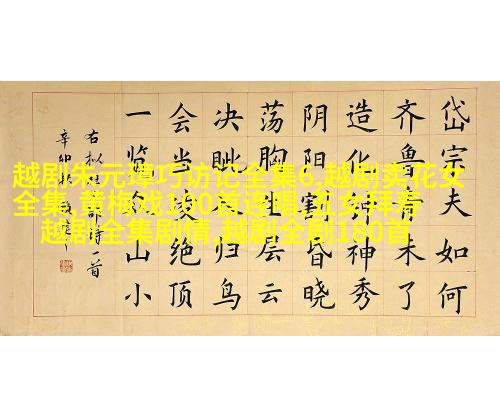 越剧朱元璋巧访记全集6,越剧卖花女
全集,黄梅戏100首连唱,五女拜寿
越剧全集剧情,越剧全剧180首
岱宗夫如何
齐鲁青未了
造化钟神秀
阴阳割昏晓
荡胸生层云
决眦入归鸟
会当凌绝顶
一览众山小
诗一首
辛卯